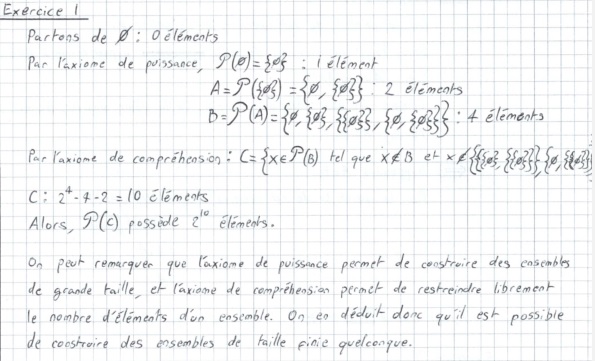 Exercice 1
Partons de ∅ : 0 éléments
Par l'axiome de puissance, P(∅) = {∅} : 1 élément
A = P({∅}) = {∅, {∅}} : 2 éléments
B = P(A) = {∅, {∅}, {{∅}}, {∅, {∅}}} : 4 éléments
Par l'axiome de compréhension : C = {x ∈ P(B) tel que x ∉ B et x ∉ {{{∅}, {{∅}}}, {∅, {{∅}}
C : 2^4 - 4 - 2 = 10 éléments
Alors, P(C) possède 2^10 éléments.
On peut remarquer que l'axiome de puissance permet de construire des ensembles
de grande taille, et l'axiome de compréhension permet de restreindre librement
le nombre d'éléments d'un ensemble. On en déduit donc qu'il est possible
de construire des ensembles de taille finie quelconque.